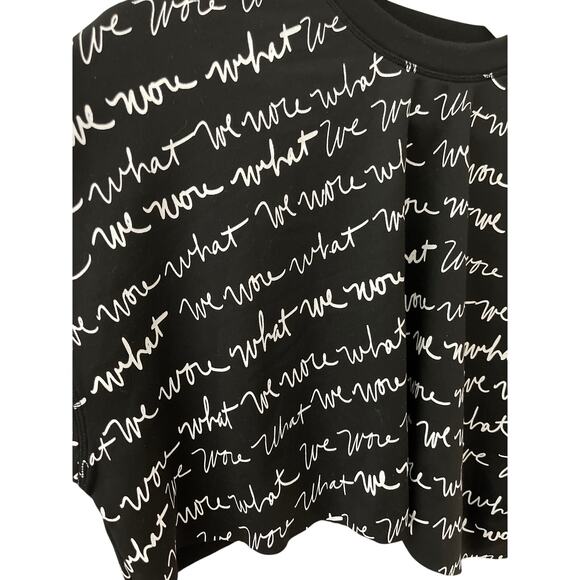 We Wore what We
we wore what
what We wore what
We wore what We Wore What
we wore what We wore what We
we wore what We Wore
we wore what We wore what We
what we wore what Wore
We wore what we wore
what We wore what we wore
what We wore what We wore
We wore what We Wore
wore what What we wore
We Wore What We Wore
what We Wore